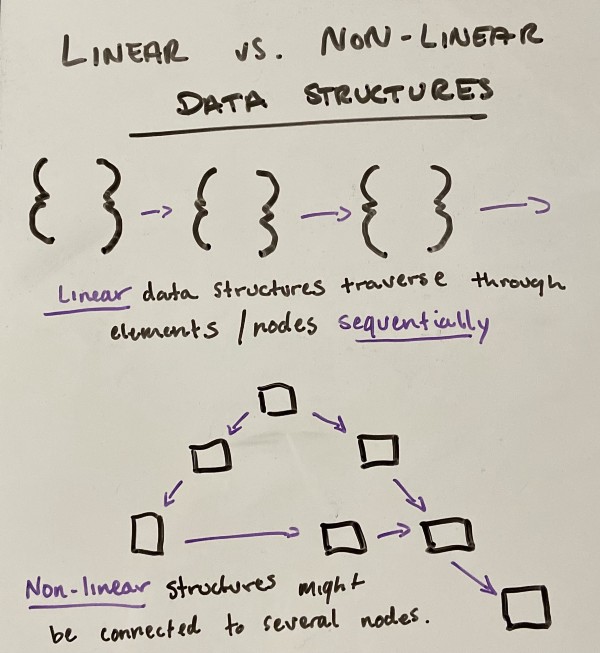 LINEAR vs. NON-LINEAR
DATA STRUCTURES
{ } → { } → { } →
Linear data structures traverse through
elements / nodes sequentially
Non-linear structures might
be connected to several nodes.